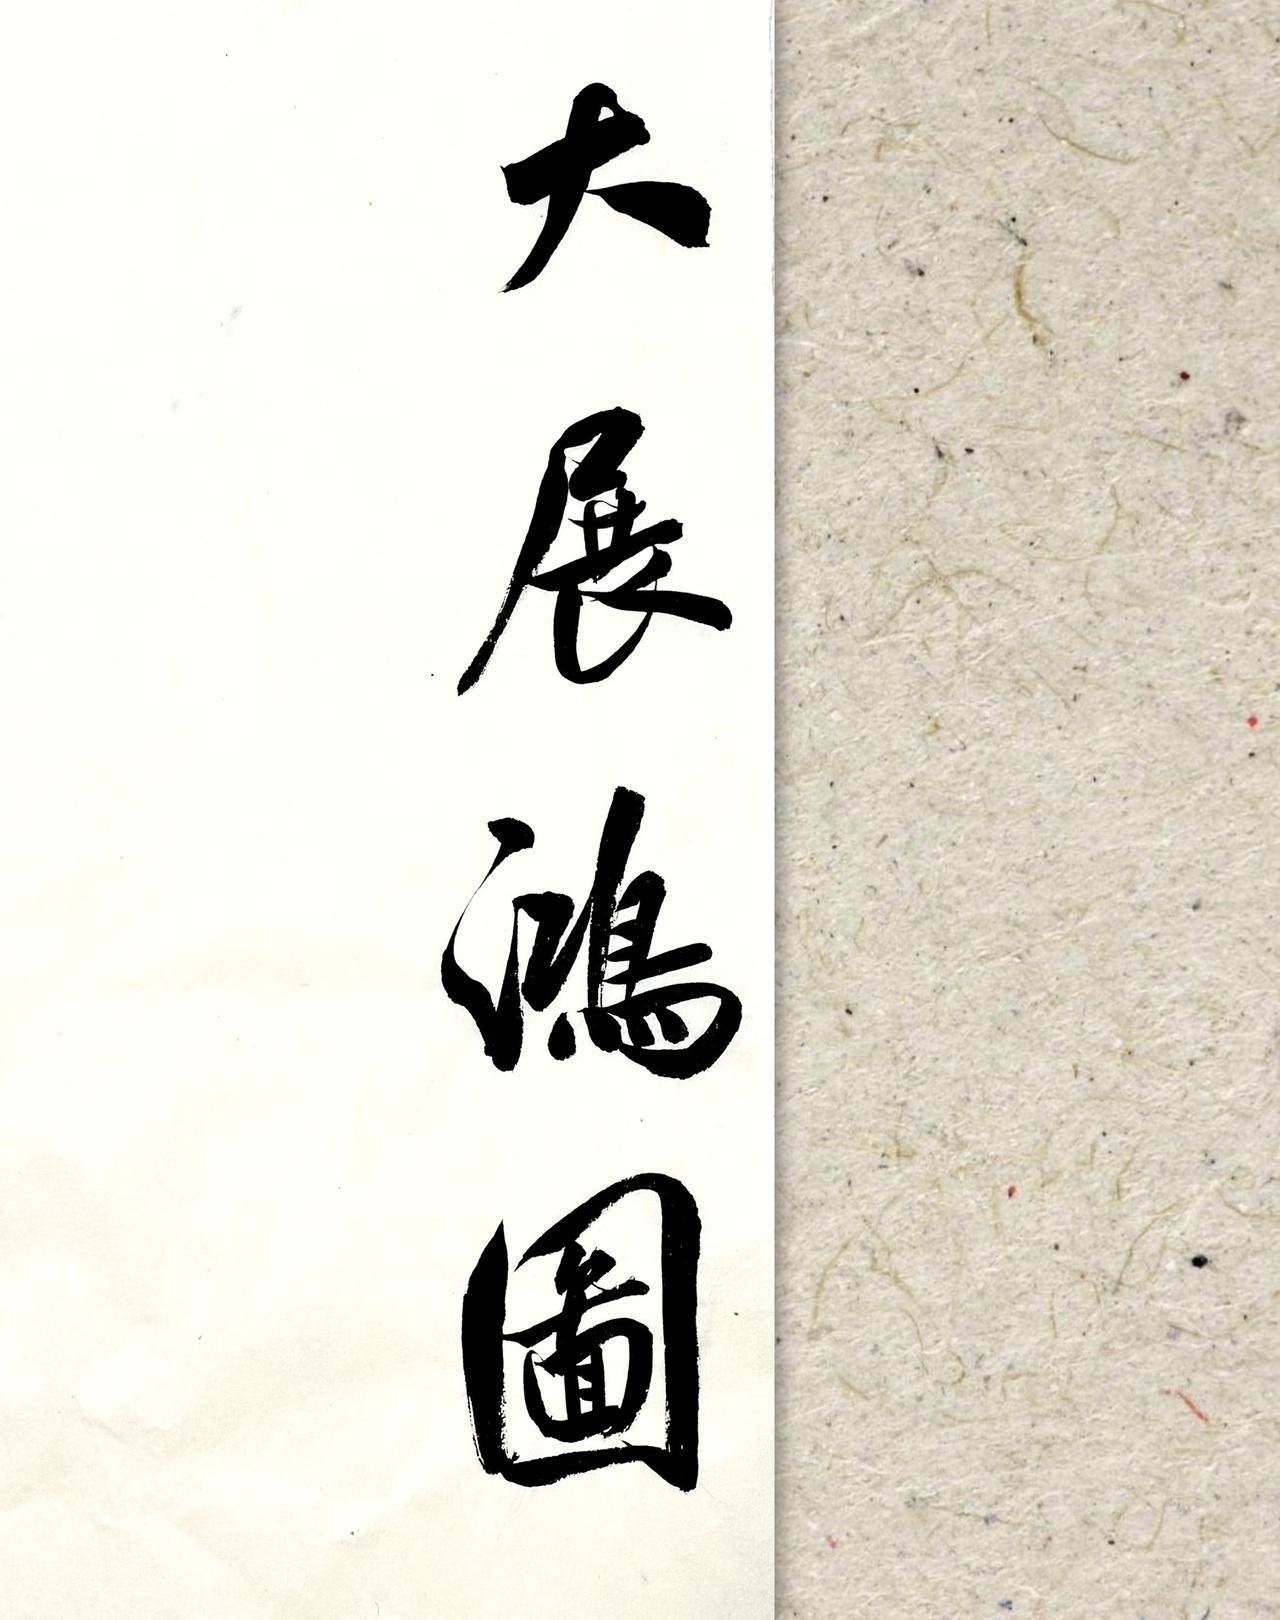 大展鴻圖